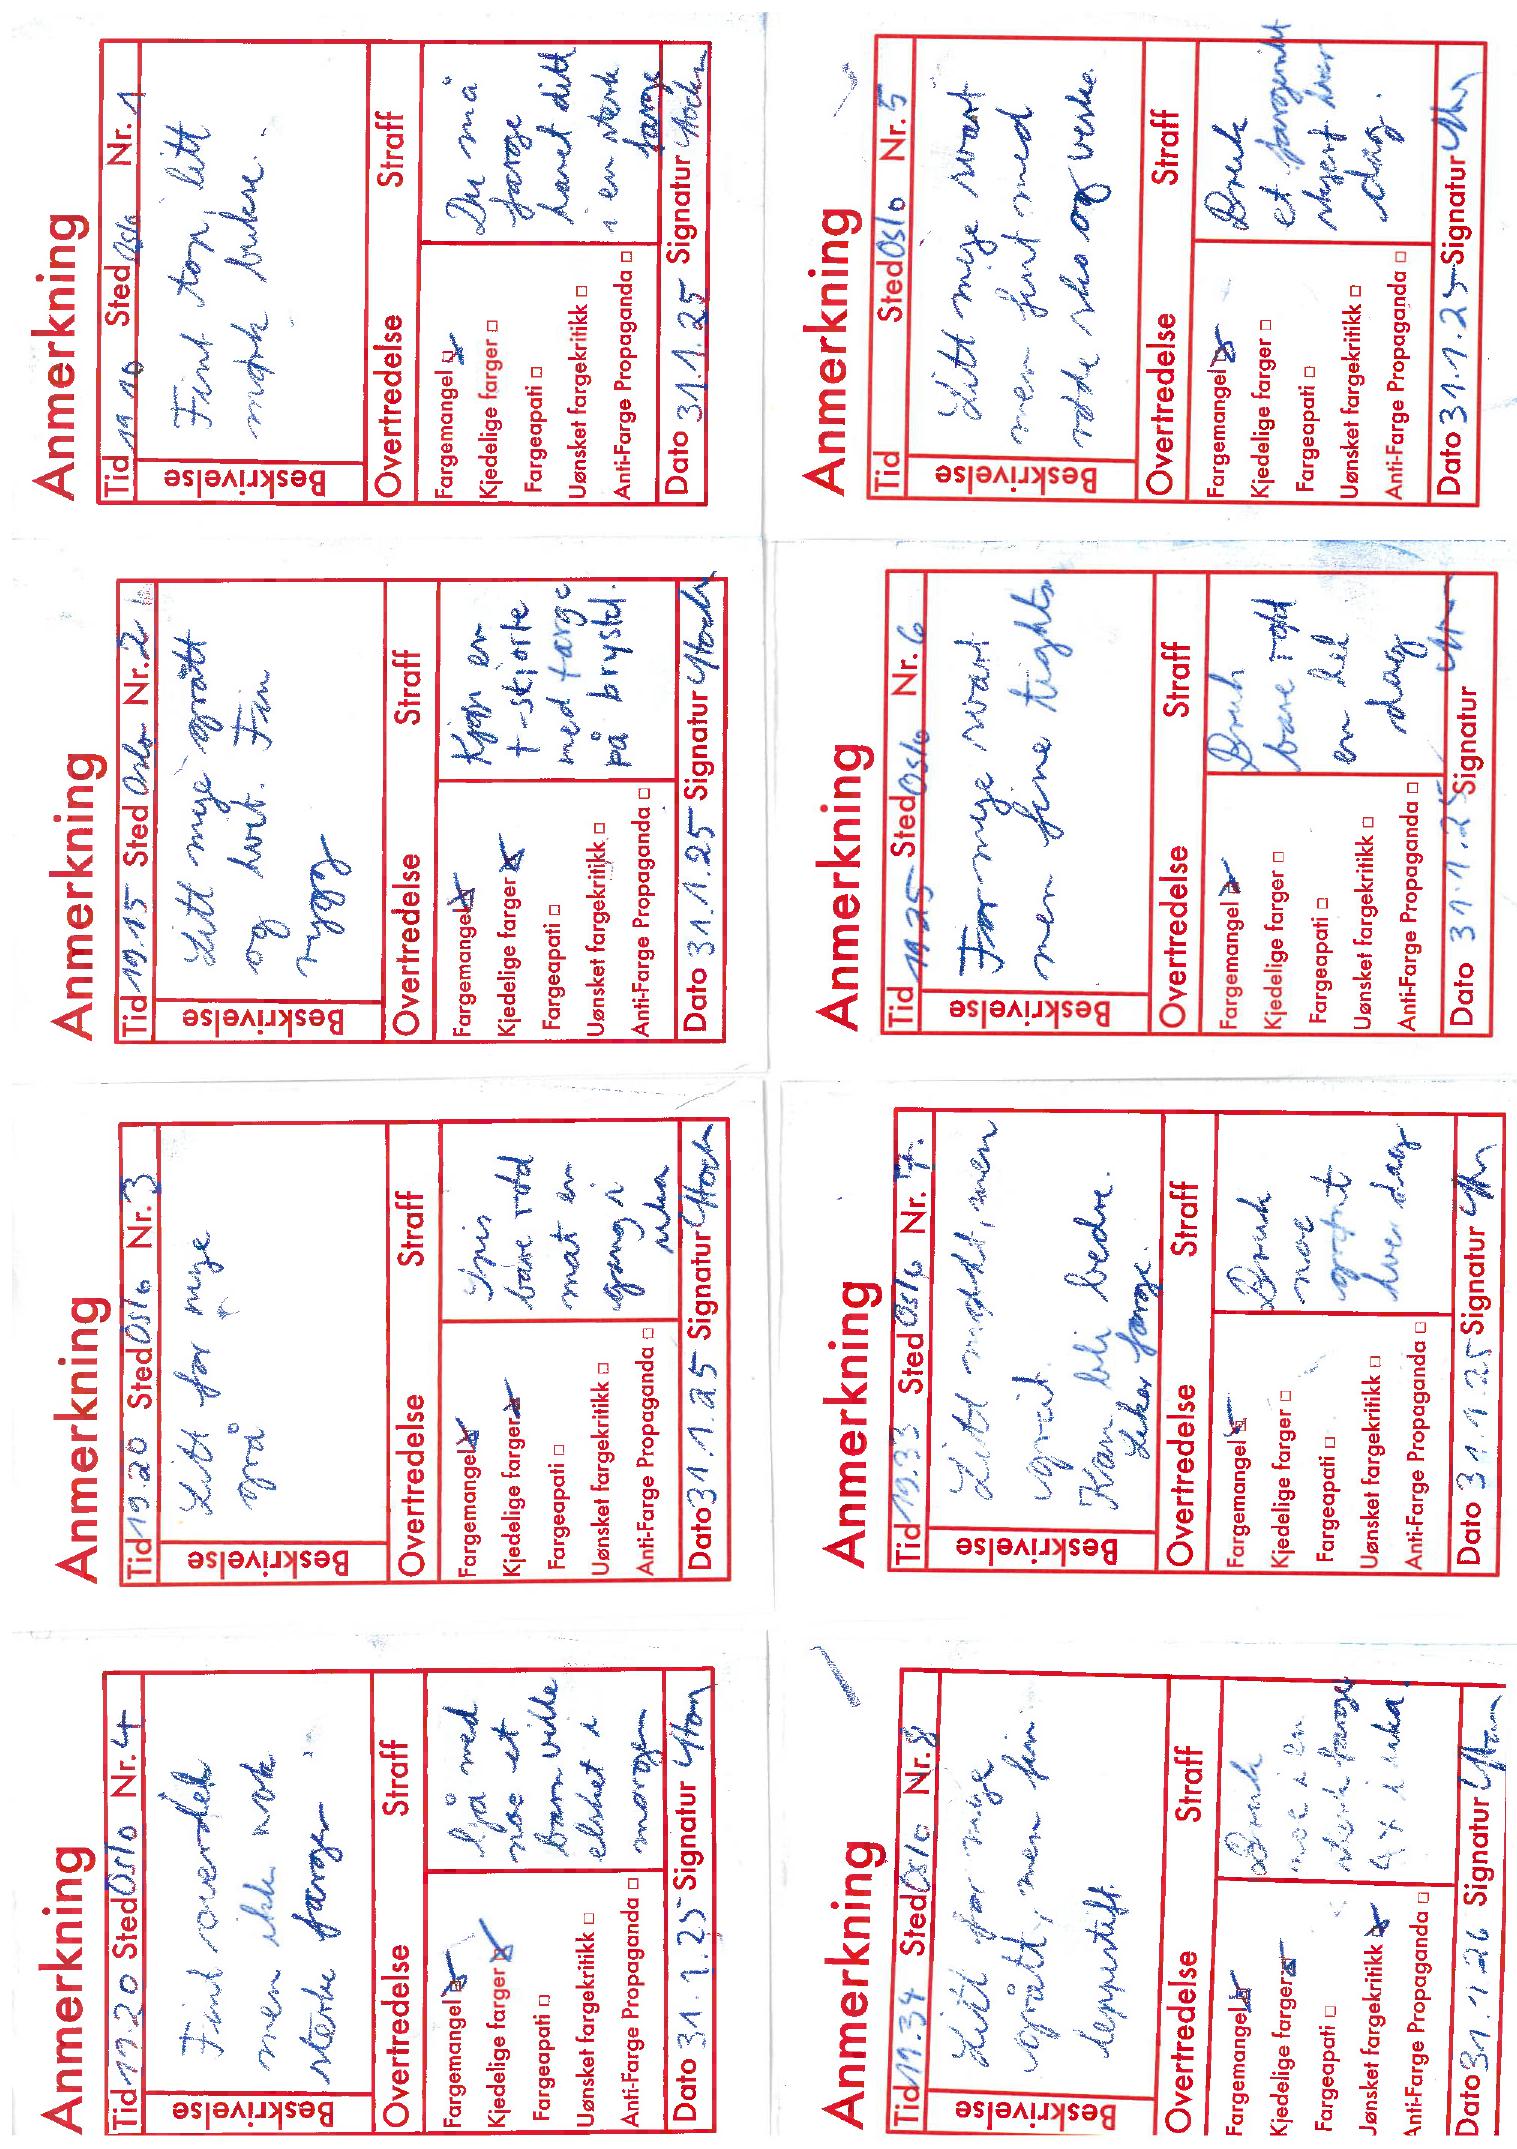 Anmerkning
Tid 19 10 Sted Oslo Nr. 1
Beskrivelse
Fint top, litt
mørk bukse.
Overtredelse Straff
Fargemangel
Kjedelige farger
Fargeapati
Uønsket fargekritikk
Anti-Farge Propaganda
Du må
farge
håret ditt
i en sterk
farge
Dato 31.1.25 Signatur
Anmerkning
Tid 19.15 Sted Oslo Nr. 2
Beskrivelse
Litt mye grått
og hvit. Fin
rygg
Overtredelse Straff
Fargemangel
Kjedelige farger
Fargeapati
Uønsket fargekritikk
Anti-Farge Propaganda
Kjøp en
t-skjorte
med farge
på brystet.
Dato 31.1.25 Signatur
Anmerkning
Tid 19.20 Sted Oslo Nr. 3
Beskrivelse
Litt for mye
grå
Overtredelse Straff
Fargemangel
Kjedelige farger
Fargeapati
Uønsket fargekritikk
Anti-Farge Propaganda
Spis
bare rød
mat en
gang i
uka
Dato 31.1.25 Signatur
Anmerkning
Tid 19.20 Sted Oslo Nr. 4
Beskrivelse
Fint
men ikke nok
sterke farger
Overtredelse Straff
Fargemangel
Kjedelige farger
Fargeapati
Uønsket fargekritikk
Anti-Farge Propaganda
Gå med
noe et
barn ville
elsket i
morgen
Dato 31.1.25 Signatur
Anmerkning
Tid Sted Oslo Nr. 5
Beskrivelse
Litt mye svart
men fint med
røde sko og veske.
Overtredelse Straff
Fargemangel
Kjedelige farger
Fargeapati
Uønsket fargekritikk
Anti-Farge Propaganda
Bruk
et fargerikt
skjerf hver
dag.
Dato 31.1.25 Signatur
Anmerkning
Tid 19.25 Sted Oslo Nr. 6
Beskrivelse
For mye svart
men fine tights
Overtredelse Straff
Fargemangel
Kjedelige farger
Fargeapati
Uønsket fargekritikk
Anti-Farge Propaganda
Bruk
bare rødt
en hel
dag
Dato 31.1.25 Signatur
Anmerkning
Tid 19.33 Sted Oslo Nr. 7.
Beskrivelse
Litt mørkt, men
greit.
Kan bli bedre.
Liker farge.
Overtredelse Straff
Fargemangel
Kjedelige farger
Fargeapati
Uønsket fargekritikk
Anti-Farge Propaganda
Bruk
noe
grønt
hver dag
Dato 31.1.25 Signatur
Anmerkning
Tid 19.34 Sted Oslo Nr. 8
Beskrivelse
Litt for mye
grått, men fin
leppestift.
Overtredelse Straff
Fargemangel
Kjedelige farger
Fargeapati
Uønsket fargekritikk
Anti-Farge Propaganda
Bruk
noe i en
sterk farge
4 x i uka.
Dato 31.1.26 Signatur